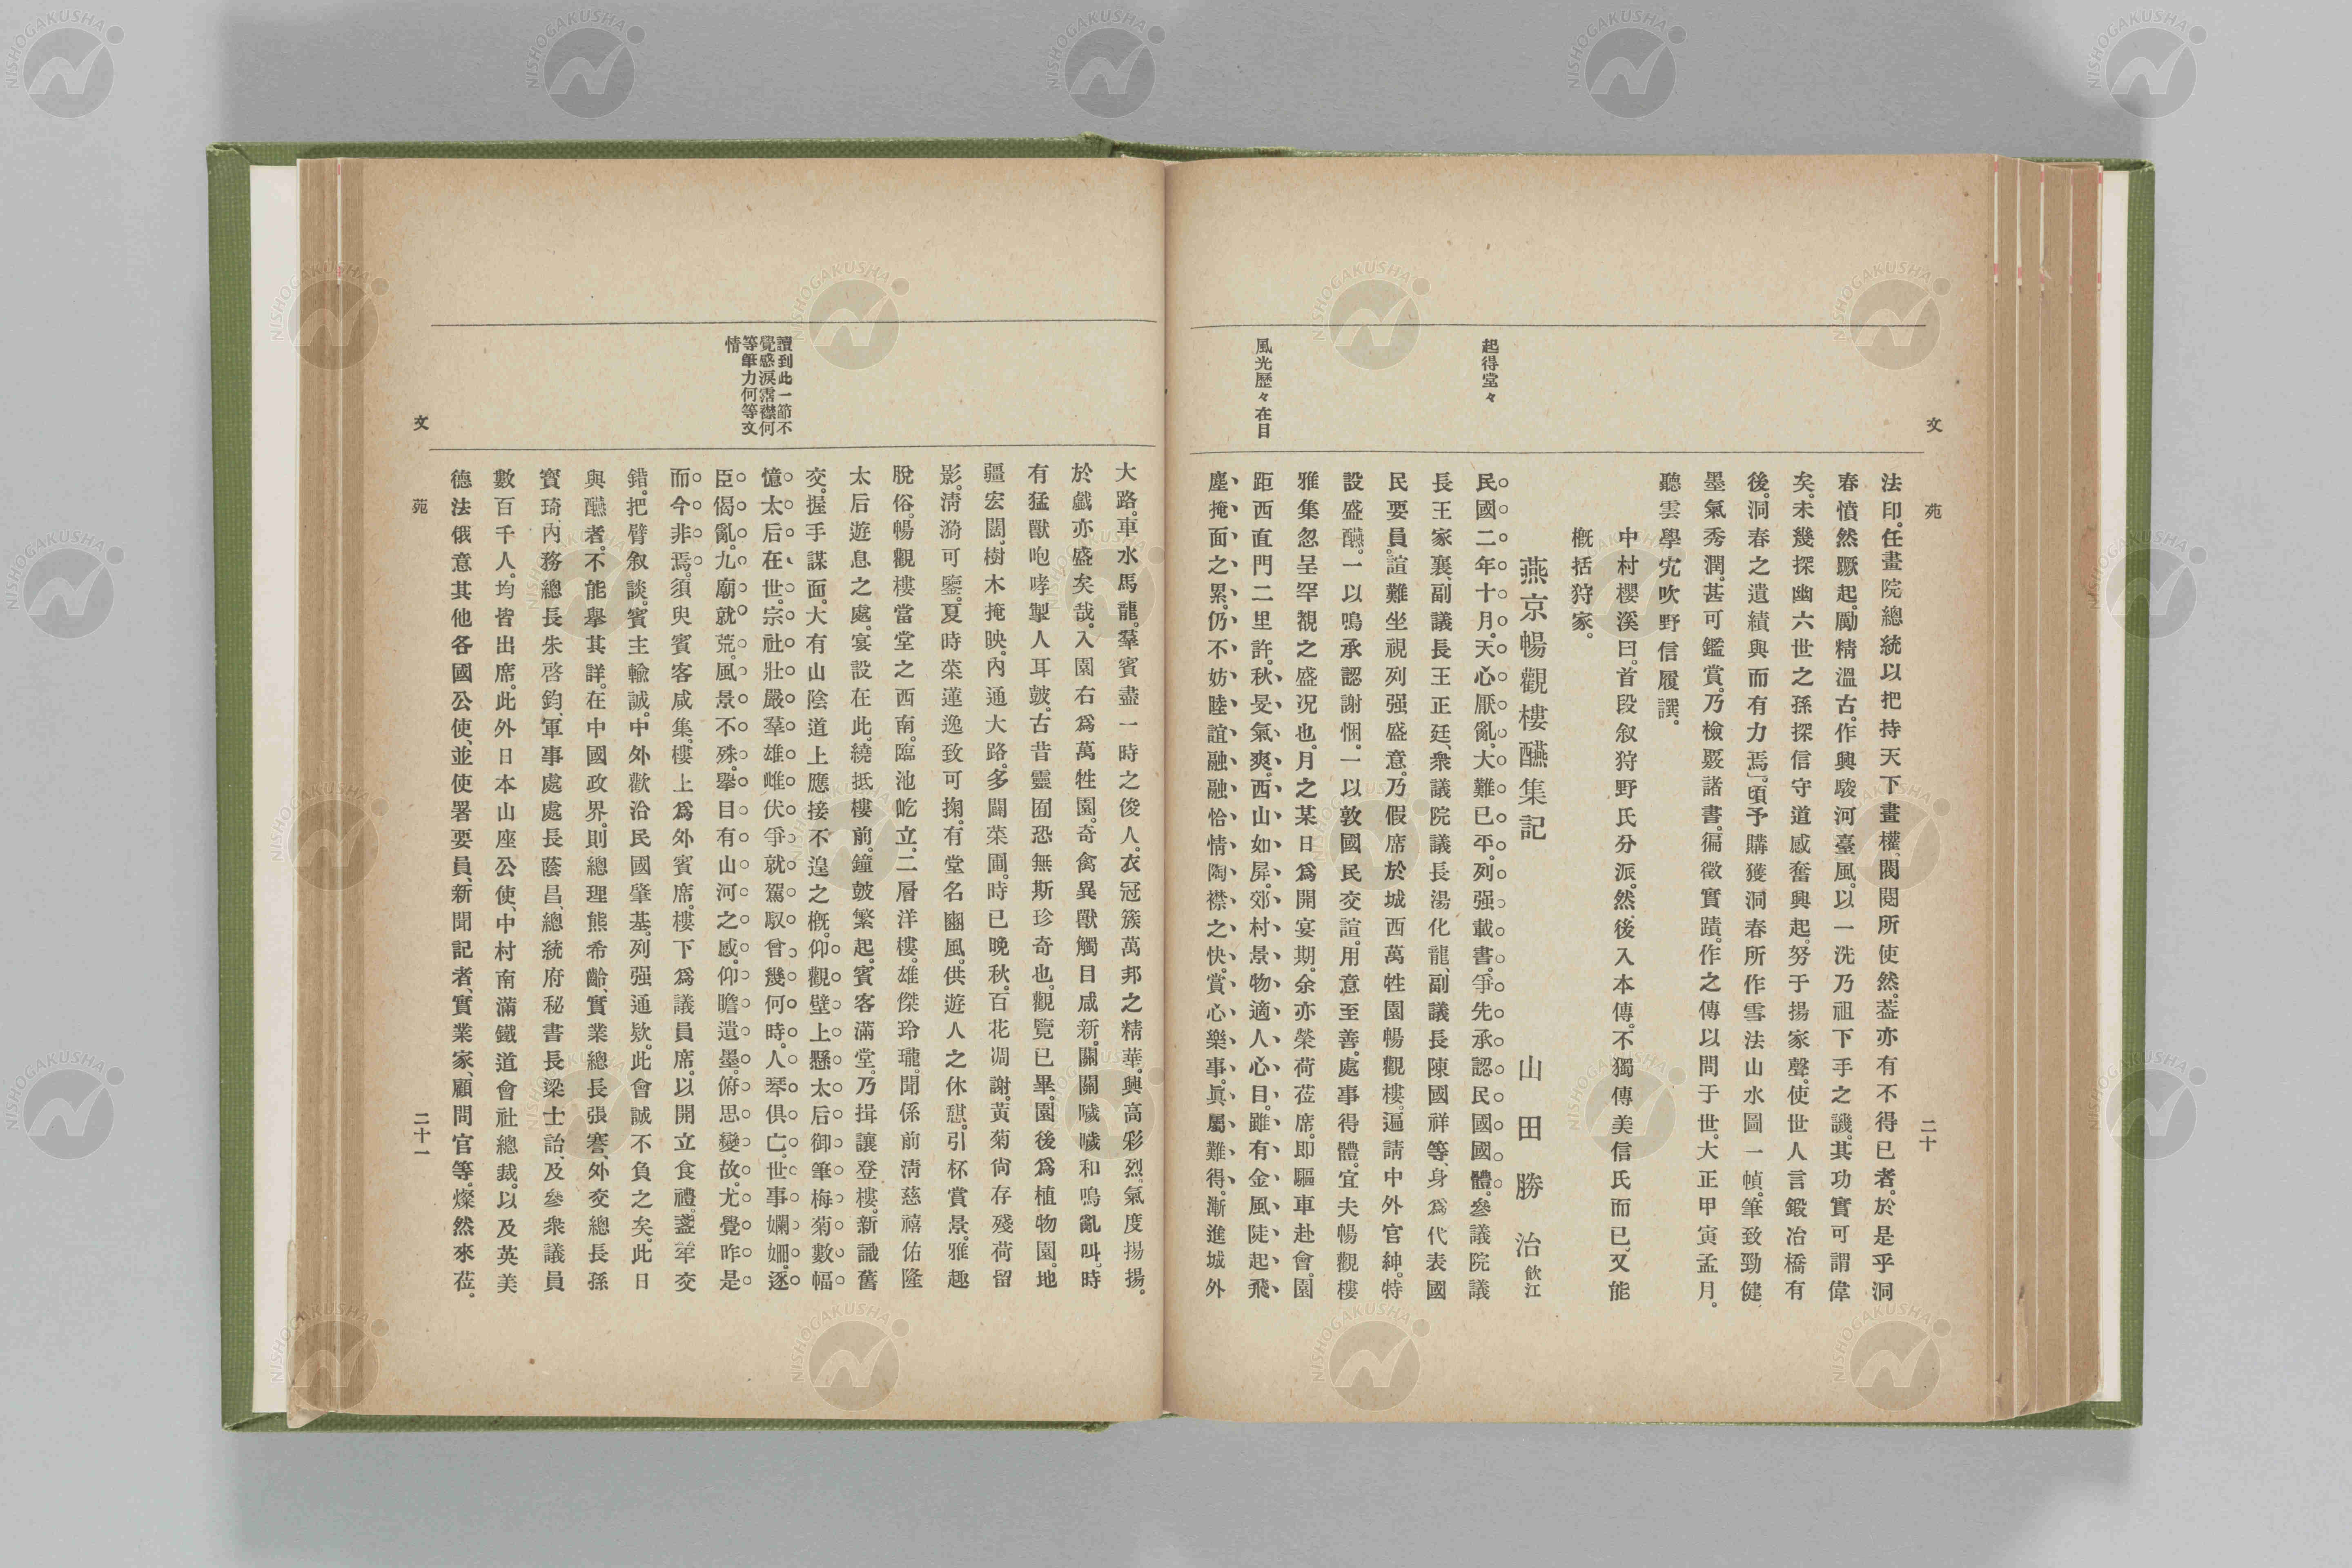 文
苑
二十
法印。任畫院總統以把持天下畫權、閥閱所使然。葢亦有不得已者。於是乎洞
春憤然蹶起。勵精溫古。作興駿河臺風。以一洗乃祖下手之譏。其功實可謂偉
矣。未幾探幽六世之孫探信守道感奮興起。努于揚家聲。使世人言鍛冶橋有
後。洞春之遺績與而有力焉」。頃予購獲洞春所作雪法山水圖一幀。筆致勁健、
墨氣秀潤。甚可鑑賞。乃檢覈諸書。徧徵實蹟。作之傳以問于世。大正甲寅孟月。
聽雲學宄吹野信履譔。
中村櫻溪曰。首段叙狩野氏分派。然、後入本傳。不獨傳美信氏而已、又能
槪括狩家。
燕京暢觀樓醼集記
山田勝治飮江
起得堂々
民國二年十月。天心厭亂、大難已平。列强載書。爭先承認民國國體。參議院議
長王家襄、副議長王正廷、衆議院議長湯化龍、副議長陳國祥等、身爲代表國
民要員。誼難坐視列强盛意。乃假席於城西萬牲園暢觀樓。遍請中外官紳。特
設盛醼。一以鳴承認謝悃。一以敦國民交誼。用意至善。處事得體。宜夫暢觀樓
雅集忽呈罕覩之盛況也。月之某日爲開宴期。余亦榮荷莅席。即驅車赴會。園
風光歷々在目
距西直門二里許。秋旻氣爽。西山如屏。郊村景物適人心目。雖有金風陡起、飛
塵掩面之累。仍不妨睦誼融融恰情陶襟之快。賞心樂事。眞屬難得。漸進城外
大路。車水馬龍。羣賓盡一時之俊人。衣冠簇萬邦之精華。興高彩烈。氣度揚揚。
於戲亦盛矣哉。入園右爲萬牲園。奇禽異獸觸目咸新。關關噦噦和鳴亂叫。時
有猛獸咆哮掣人耳皷。古昔靈囿恐無斯珍奇也。觀覽已畢。園後爲植物園。地
疆宏闊。樹木掩映。內通大路。多闢菜圃。時已晚秋。百花凋謝。黃菊尙存殘荷留
影。淸漪可鑒。夏時菜蓮逸致可掬。有堂名豳風。供遊人之休憇。引杯賞景。雅趣
脫俗。暢觀樓當堂之西南。臨池屹立。二層洋樓。雄傑玲瓏。聞係前淸慈禧佑隆
太后遊息之處。宴設在此。繞抵樓前。鐘皷繁起。賓客滿堂。乃揖讓登樓。新識舊
交。握手謀面。大有山陰道上應接不遑之槪。仰觀壁上懸太后御筆梅菊數幅
讀到此一節不
覺感淚霑襟何
等筆力何等文
情
憶太后在世。宗社壯嚴羣雄雌伏爭就駕馭曾幾何時。人琴俱亡。世事斕姍。逐
臣倡亂。九廟就荒。風景不殊。擧目有山河之感。仰瞻遺墨。俯思變故。尤覺昨是
而今非焉。須臾賓客咸集。樓上爲外賓席。樓下爲議員席。以開立食禮。盞斝交
錯。把臂叙談。賓主輸誠。中外歡洽民國肇基。列强通欵。此會誠不負之矣。此日
與醼者。不能擧其詳。在中國政界。則總理熊希齡、實業總長張謇、外交總長孫
寳琦、內務總長朱啓鈞、軍事處處長蔭昌、總統府秘書長梁士詒、及參衆議員
數百千人。均皆出席。此外日本山座公使、中村南滿鐵道會社總裁。以及英美
德法俄意其他各國公使、並使署要員、新聞記者、實業家、顧問官等。燦然來莅。
文
苑
二十一
NISHOGAKUSHA